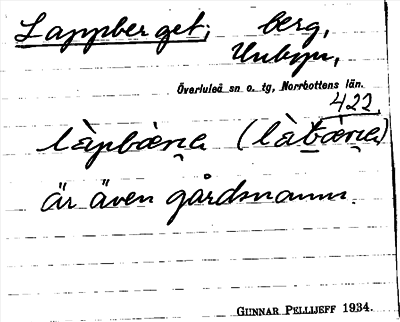 Lappberget; berg,
Unbyn,
Överluleå sn o. tg, Norrbottens län.
422
làpbær̥a (làbær̥a)
är även gårdsnamn.
GUNNAR PELLIJEFF 1934.